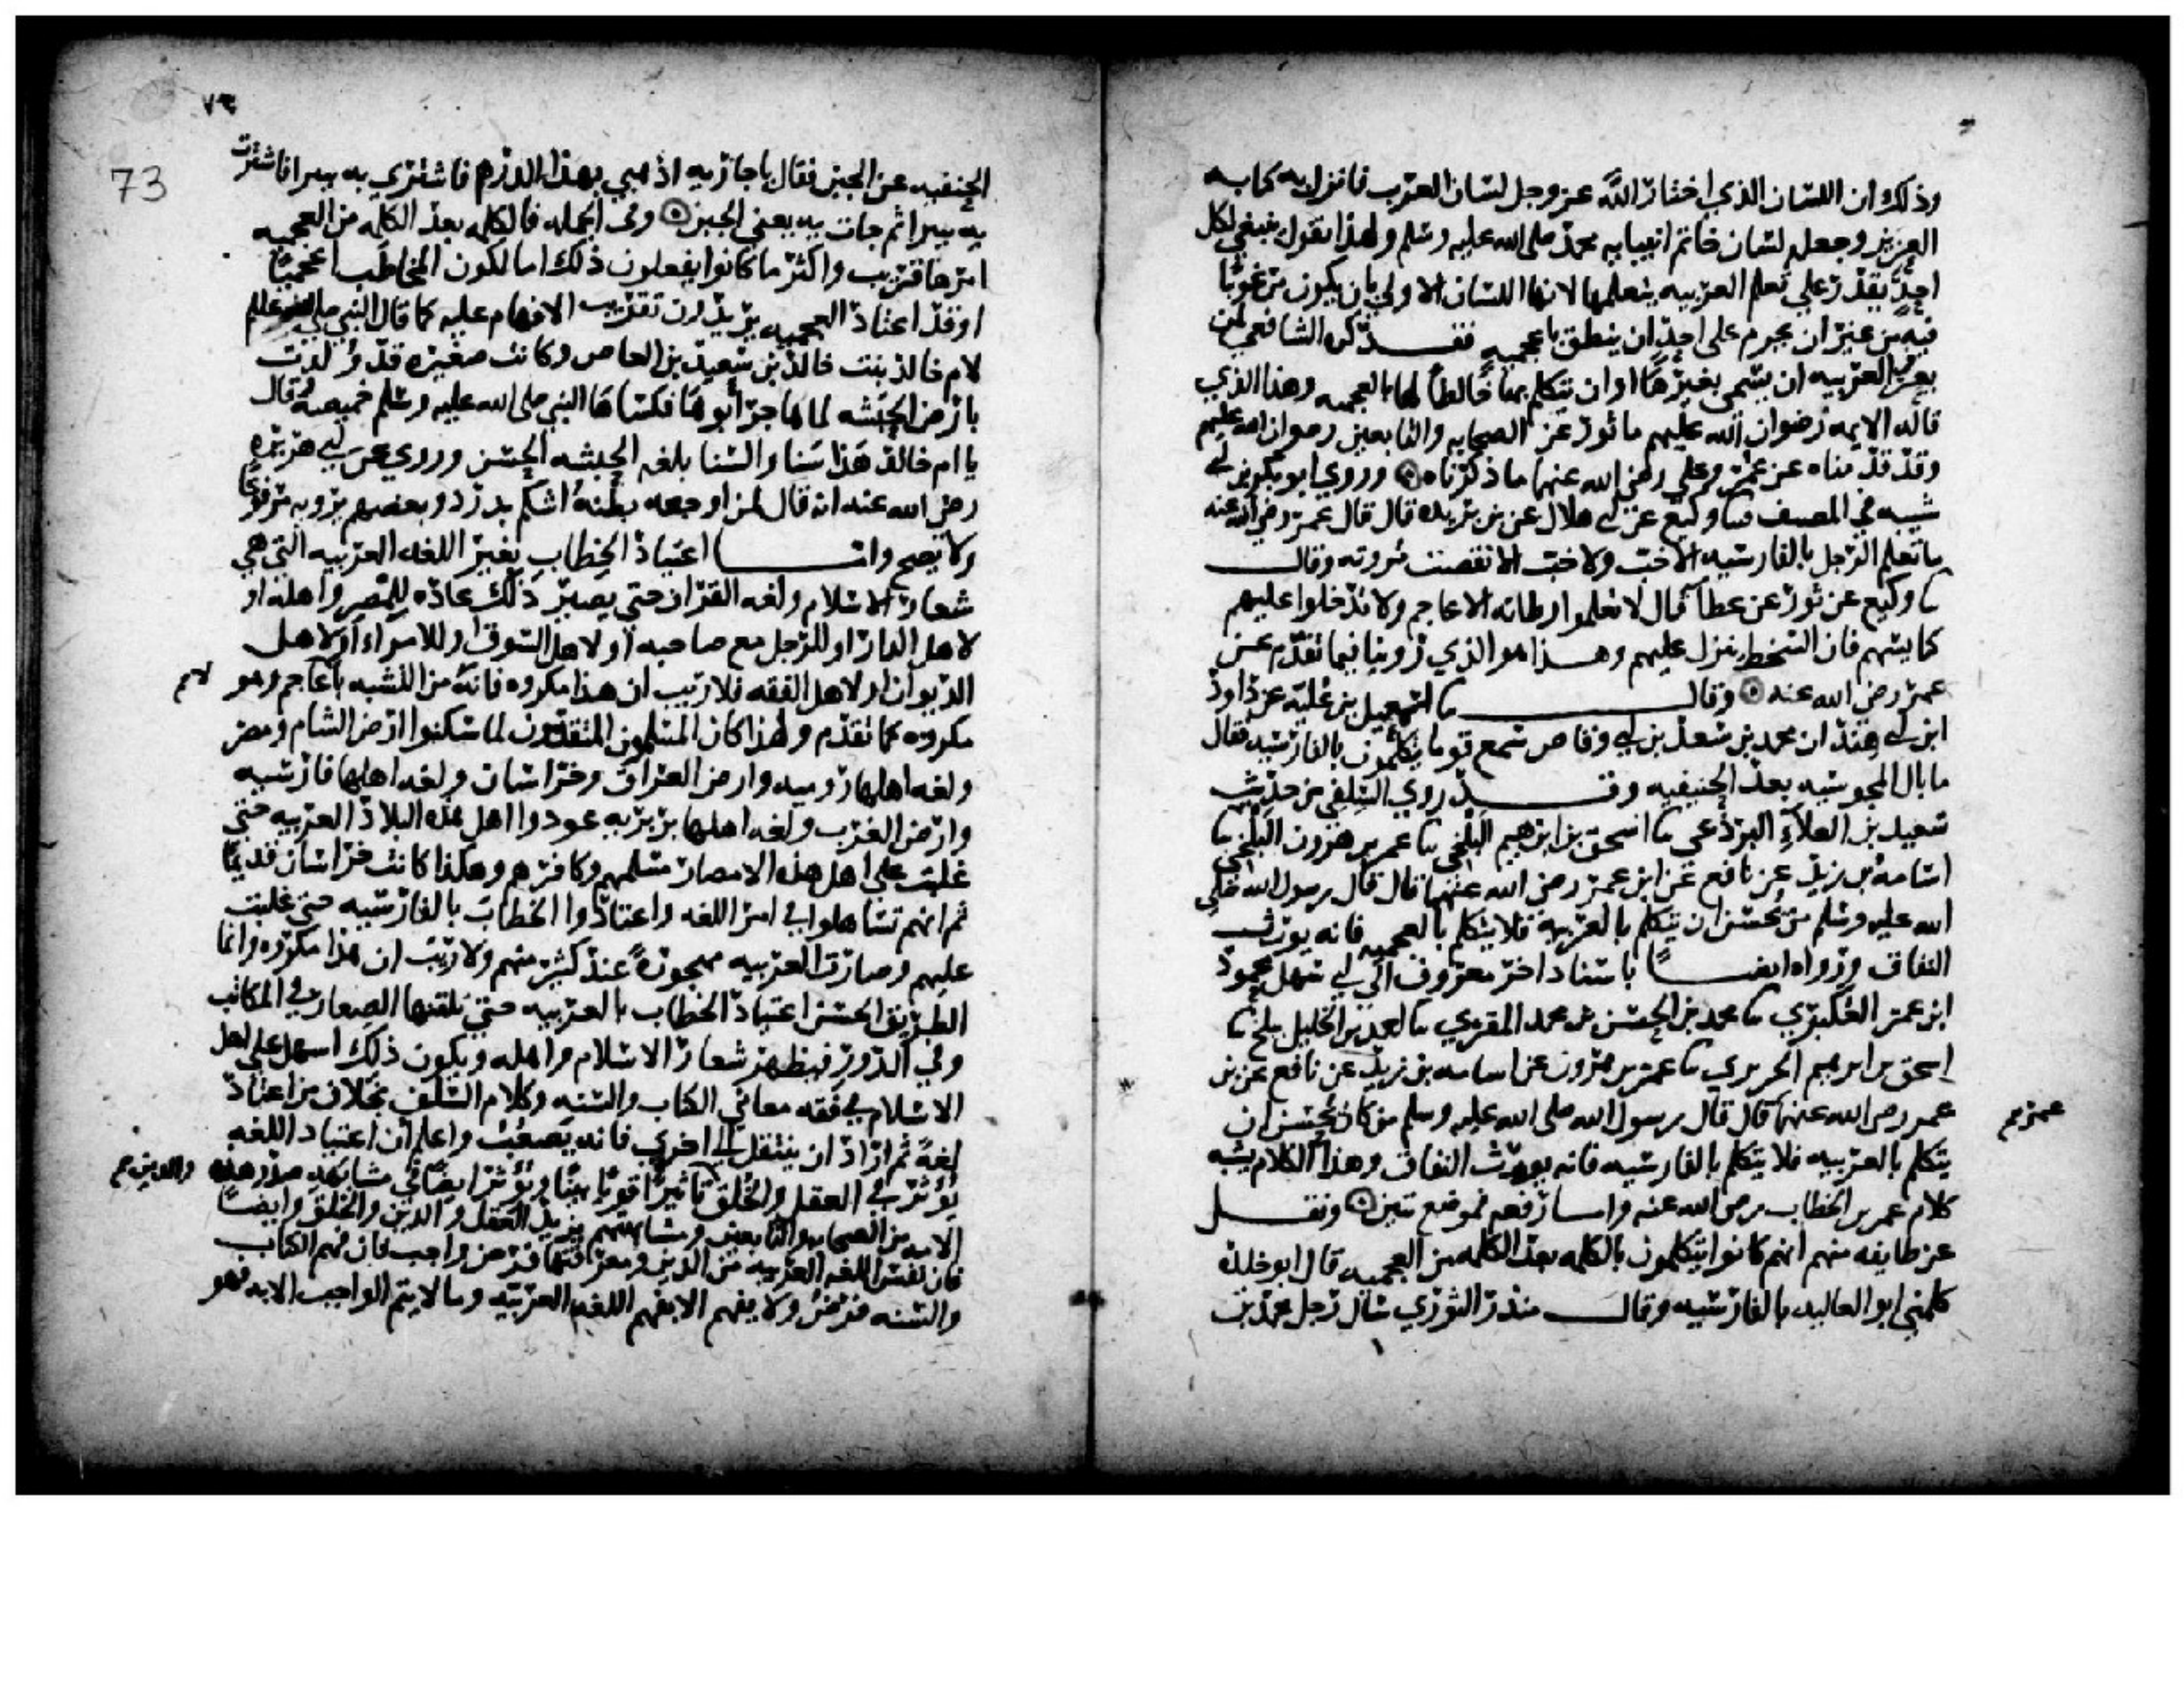 وذلك ان اللسان الذي اختار الله عز وجل لسان العرب فانزل به كتابه
العزيز وجعله لسان خاتم انبيايه محمد صلى الله عليه وسلم ولهذا نقول ينبغي لكل
احد يقدر على تعلم العربيه يتعلمها لانها اللسان الاولى بان يكون مرغوبا
فيه من غير ان يحرم على احد ان ينطق باعجميه فقد كره الشافعي لمن
يعرف العربيه ان يسمى بغيرها او ان يتكلم بها خالطا لها بالعجميه وهذا الذي
قاله الايمه رضوان الله عليهم ماثور عن الصحابه والتابعين رضوان الله عليهم
وقد قدمناه عن عمر وعلي رضي الله عنهما ما ذكرناه وروي ابو بكر بن ابي
شيبه في المصنف ثنا وكيع عن ابي هلال عن بن بريده قال قال عمر رضي الله عنه
ما تعلم الرجل بالفارسيه الا خب ولا خب الا نقصت مروته وقال
ثنا وكيع عن ثور عن عطا قال لا تعلموا رطانه الاعاجم ولا تدخلوا عليهم
كنايسهم فان السخط ينزل عليهم وهذا هو الذي روينا فيما تقدم عن
عمر رضي الله عنه وقال ثنا اسمعيل بن عليه عن داود
ابن ابي هند ان محمد بن سعد بن ابي وقاص سمع قوما يتكلمون بالفارسيه فقال
ما بال المجوسيه بعد الحنيفيه وقد روي السلفي من حديث
سعيد بن العلاء البرذعي ثنا اسحق بن ابرهيم البلخي ثنا عمر بن هرون البلخي ثنا
اسامه بن زيد عن نافع عن ابن عمر رضي الله عنهما قال قال رسول الله صلى
الله عليه وسلم من يحسن ان يتكلم بالعربيه فلا يتكلم بالعجميه فانه يورث
النفاق ورواه ايضا باسناد اخر معروف الى ابي سهل محمود
ابن عمر العكبري ثنا محمد بن الحسن بن محمد المقري ثنا احمد بن الخليل ببلخ ثنا
اسحق بن ابرهيم الحريري ثنا عمر بن هرون عن اسامه بن زيد عن نافع عن بن
عمر رضي الله عنهما قال قال رسول الله صلى الله عليه وسلم من كان يحسن ان
عمر
يتكلم بالعربيه فلا يتكلم بالفارسيه فانه يورث النفاق وهذا الكلام يشبه
كلام عمر بن الخطاب رضي الله عنه واما رفعه فموضع تبين ونقل
عن طايفه منهم انهم كانوا يتكلمون بالكلمه بعد الكلمه من العجميه قال ابو خلده
كلمني ابو العاليه بالفارسيه وقال منذر الثوري سال رجل محمد بن
٧٣
73
الحنفيه عن الجبن فقال يا جاريه اذهبي بهذا الدرهم فاشتري به نبيرا فاشترت
به نبيرا ثم جات به يعني الجبن وفي الجمله فالكلمه بعد الكلمه من العجميه
امرها قريب واكثر ما كانوا يفعلون ذلك اما لكون المخاطب اعجميا
او قد اعتاد العجميه يريدون تقريب الافهام عليه كما قال النبي صلى الله عليه وسلم
لام خالد بنت خالد بن سعيد بن العاص وكانت صغيره قد ولدت
بارض الحبشه لما هاجر ابوها فكساها النبي صلى الله عليه وسلم خميصه وقال
يا ام خالد هذا سنا والسنا بلغه الحبشه الحسن وروي عن ابي هريره
رضي الله عنه انه قال لمن اوجعه بطنه اشكم بدرد وبعضهم يرويه مرفوعا
ولا يصح واما اعتياد الخطاب بغير اللغه العربيه التي هي
شعار الاسلام ولغه القران حتى يصير ذلك عاده للمصر واهله او
لاهل الدار او للرجل مع صاحبه او لاهل السوق او للامراء او لاهل
الديوان او لاهل الفقه فلا ريب ان هذا مكروه فانه من التشبه باعاجم وهو
مكروه كما تقدم ولهذا كان المسلمون المتقدمون لما سكنوا ارض الشام ومصر
ولغه اهلها روميه وارض العراق وخراسان ولغه اهلها فارسيه
وارض الغرب ولغه اهلها بربريه عودوا اهل هذه البلاد العربيه حتى
غلبت على اهل هذه الامصار مسلمهم وكافرهم وهكذا كانت خراسان قديما
ثم انهم تساهلوا في امر اللغه واعتادوا الخطاب بالفارسيه حتى غلبت
عليهم وصارت العربيه مهجوره عند كثير منهم ولا ريب ان هذا مكروه وانما
الطريق الحسن اعتياد الخطاب بالعربيه حتى يلقنها الصغار في المكاتب
وفي الدور فيظهر شعار الاسلام واهله ويكون ذلك اسهل على اهل
الاسلام في فقه معاني الكتاب والسنه وكلام السلف بخلاف من اعتاد
لغه ثم اراد ان ينتقل الى اخرى فانه يصعب واعلم ان اعتياد اللغه
يؤثر في العقل والخلق تاثيرا قويا بينا ويؤثر ايضا في مشابهه صدر هذه
والدين
الامه من الصحابه والتابعين ومشابهتهم يزيد العقل والدين والخلق وايضا
فان نفس اللغه العربيه من الدين ومعرفتها فرض واجب فان فهم الكتاب
والسنه فرض ولا يفهم الا بفهم اللغه العربيه وما لا يتم الواجب الا به فهو